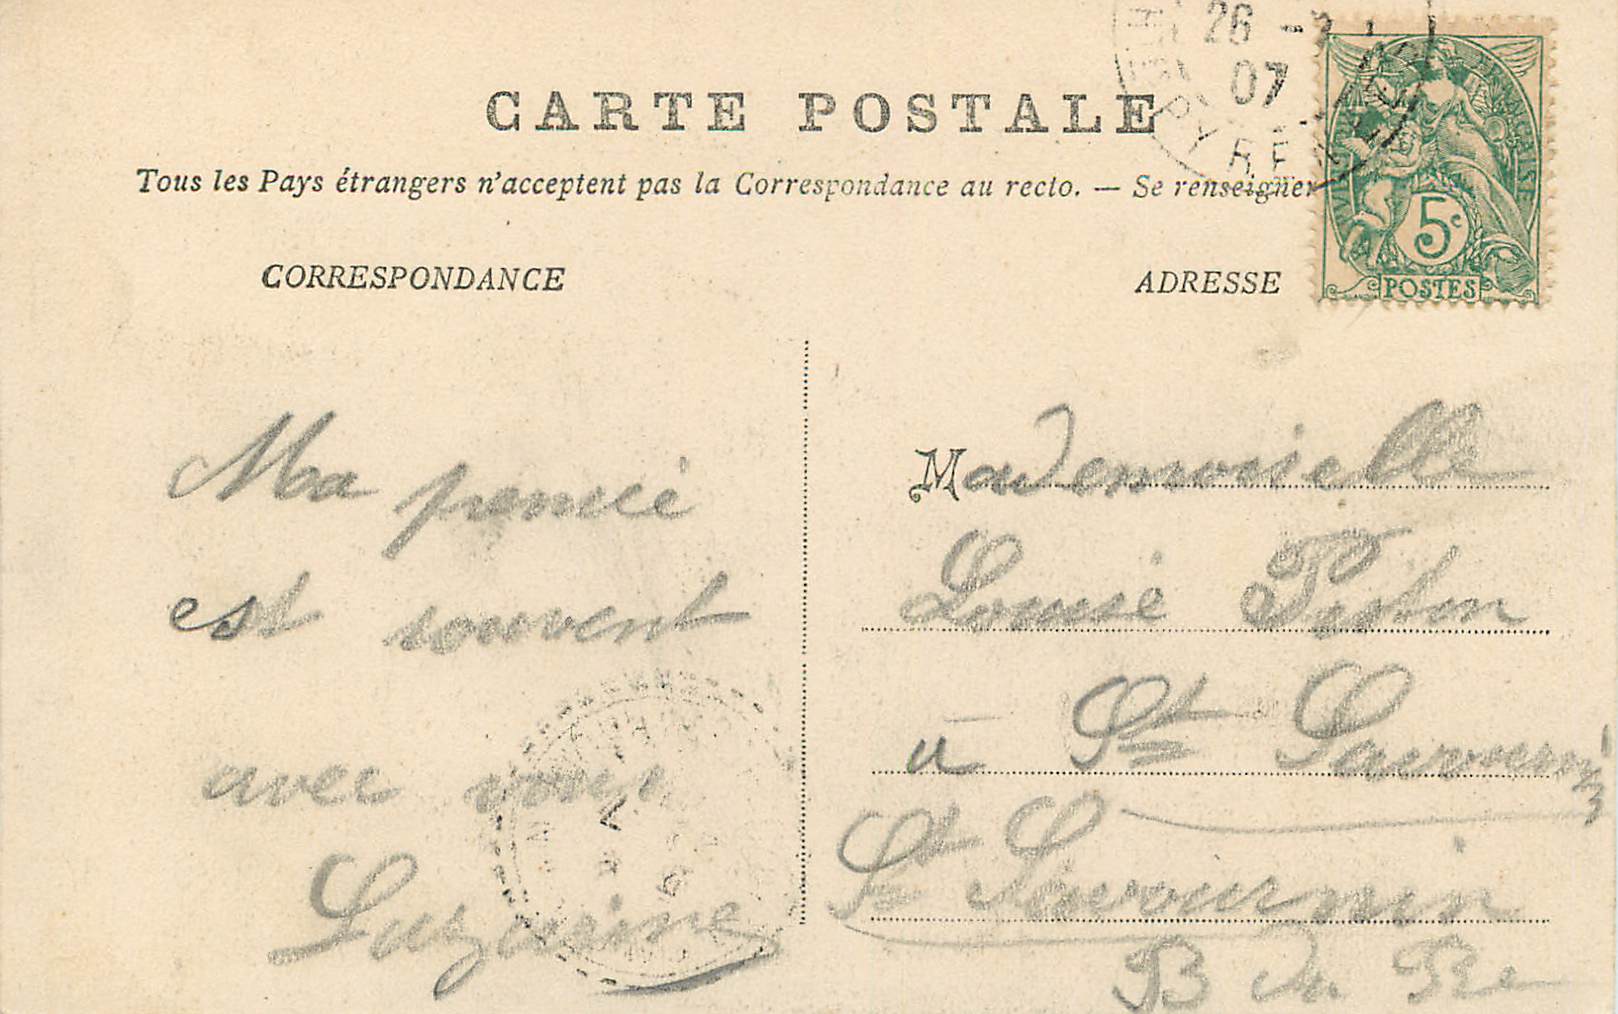 26 -
07
PYRÉNÉES
RÉPUBLIQUE FRANÇAISE
5c
POSTES
CARTE POSTALE
Tous les Pays étrangers n'acceptent pas la Correspondance au recto. — Se renseigner
CORRESPONDANCE
ADRESSE
Ma pensée
est souvent
avec vous
Mademoiselle
Louise
à St Savournin
St Savournin
B du Rhe